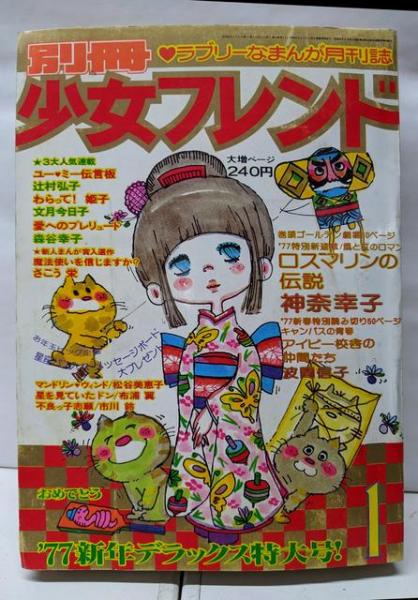 別冊
♥ラブリーなまんが月刊誌
少女フレンド
大増ページ
240円
★3大人気連載
ユー♥ミー伝言板
辻村弘子
わらって! 姫子
文月今日子
愛へのプレリュード
森谷幸子
★新人まんが賞入選作
魔法使いを信じますか?
さこう 栄
巻頭ゴールデン劇場
'77特別新連載/風と虹のロマン
ロスマリンの
伝説
神奈幸子
'77新春特別読み切り60ページ
キャンパスの青春
アイビー校舎の
仲間たち
子
メッセージボード
大プレゼント
マンドリン♥ウィンド/松谷美恵子
星を見ていたドン/布浦翼
不良っ子志願/市川
おめでとう
1
'77新年デラックス特大号!